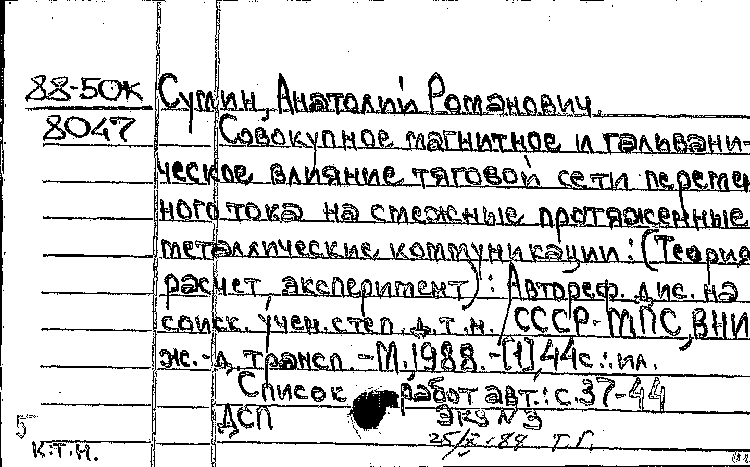 88-50К Сумин, Анатолий Романович.
8047 Совокупное магнитное и гальвани-
ческое влияние тяговой сети перемен
ного тока на смежные протяженные
металлические коммуникации: (Теория
расчет, эксперимент): Автореф. дис. на
соиск. учен. степ. д.т.н. / СССР-МПС, ВНИ
ж.-д. трансп. -М., 1988. -[1], 44с.: ил.
Список работ авт.: с. 37-44
ДСП ЭКЗ N 3
5 25/ 89 Т.Г.
К.Т.Н.